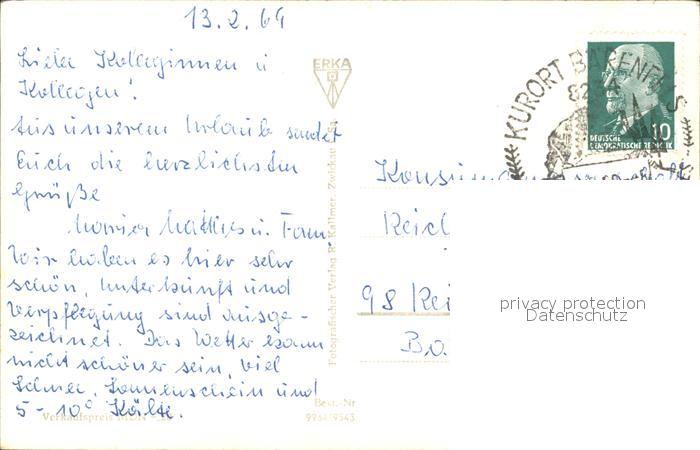 13.2.69
Liebe Kolleginnen u
Kollegen!
Aus unserem Urlaub sendet
Euch die herzlichsten
Grüße
u. Fam.
Wir haben es hier sehr
schön, Unterkunft und
Verpflegung sind ausge-
zeichnet. Das Wetter kann
nicht schöner sein, viel
Schnee, Sonnenschein und
5-10° Kälte.
Verkaufspreis MDN
ERKA
Fotografischer Verlag R. Kallmer, Zwickau
Best.-Nr
KURORT BÄRENFELS
DEUTSCHE
DEMOKRATISCHE REPUBLIK
10
Reic
98 Rei
privacy protection
Datenschutz